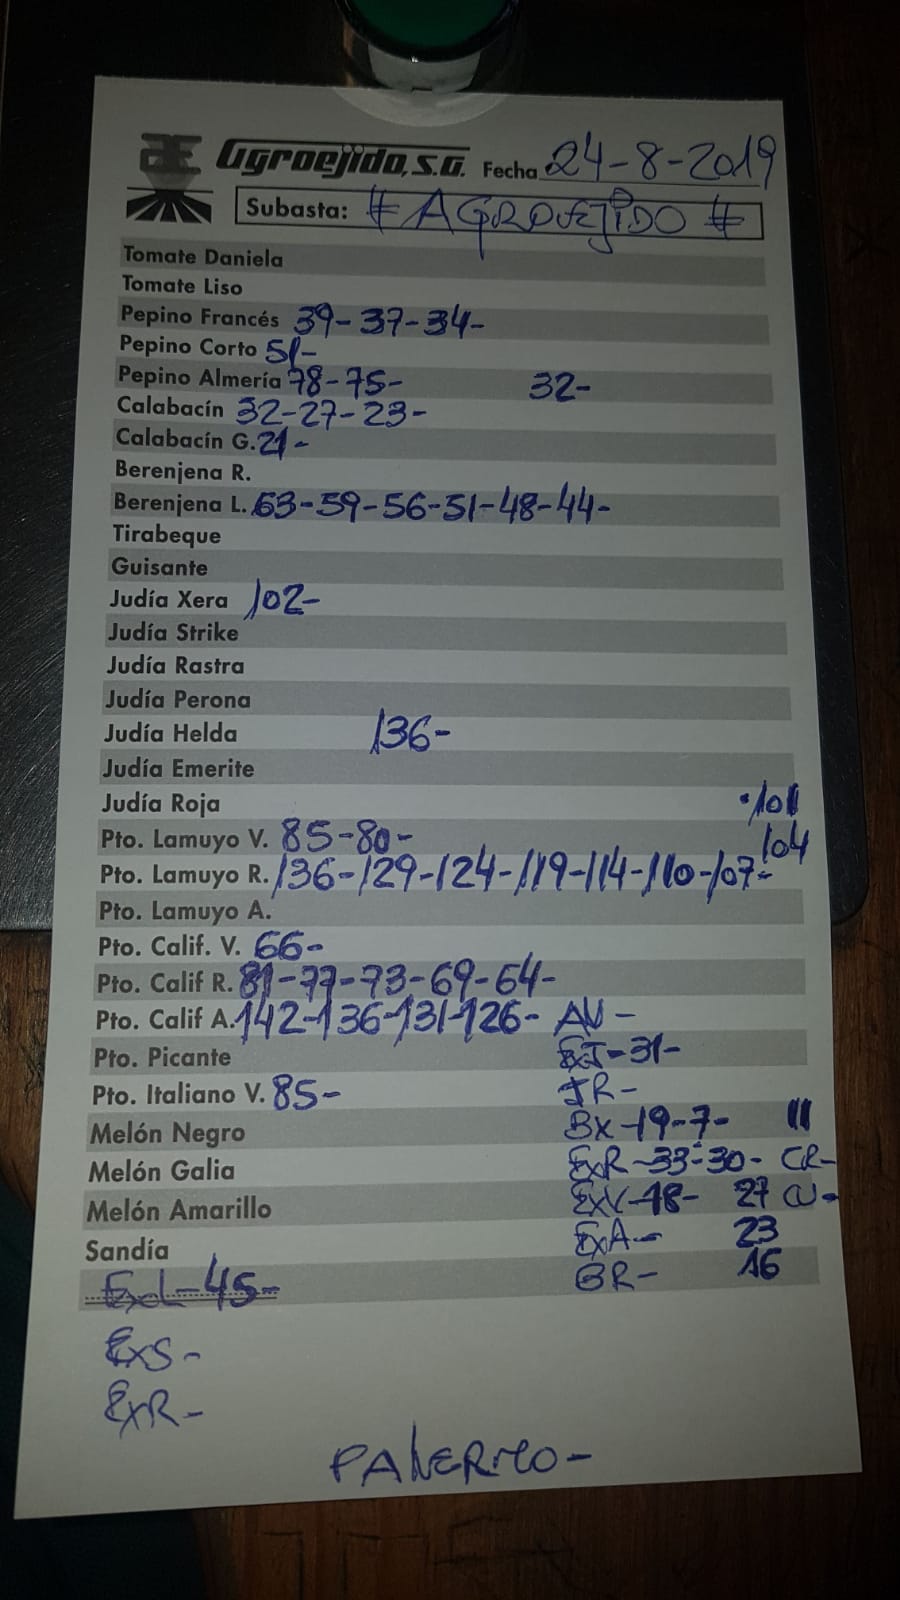 Agroejido, S.A. Fecha 24-8-2019
Subasta: # AGROEJIDO #
Tomate Daniela
Tomate Liso
Pepino Francés 39-37-34-
Pepino Corto 51-
Pepino Almería 78-75- 32-
Calabacín 32-27-23-
Calabacín G. 21-
Berenjena R.
Berenjena L. 63-59-56-51-48-44-
Tirabeque
Guisante
Judía Xera 102-
Judía Strike
Judía Rastra
Judía Perona
Judía Helda 136-
Judía Emerite
Judía Roja 101
Pto. Lamuyo V. 85-80- 104
Pto. Lamuyo R. 136-129-124-119-114-110-107-
Pto. Lamuyo A.
Pto. Calif. V. 66-
Pto. Calif R. 81-77-73-69-64-
Pto. Calif A. 142-136-131-126- AV-
Pto. Picante ExJ-31-
Pto. Italiano V. 85- JR-
Melón Negro Bx-19-7-
Melón Galia ExR-33-30- CR-
Melón Amarillo ExV-18- 27 CV-
Sandía ExA- 23
ExL-45- GR- 16
ExS-
ExR-
PALERMO-